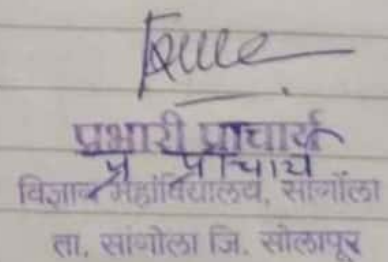 प्रभारी प्राचार्य
प्र प्राचार्य
विज्ञान महाविद्यालय, सांगोला
ता. सांगोला जि. सोलापूर